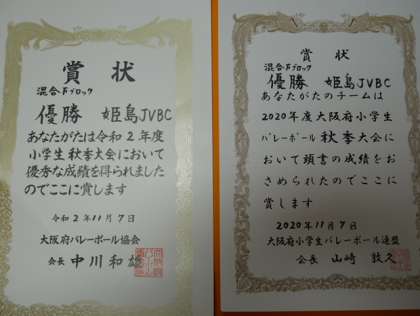 賞状
混合Fブロック
優勝 姫島JVBC
あなたがたは令和2年度
小学生秋季大会において
優秀な成績を得られました
のでここに賞します
令和2年11月7日
大阪府バレーボール協会
会長 中川和雄
賞状
混合Fブロック
優勝 姫島JVBC
あなたがたのチームは
2020年度大阪府小学生
バレーボール秋季大会に
おいて頭書の成績をお
さめられたのでここに
賞します
2020年11月7日
大阪府小学生バレーボール連盟
会長 山崎敦久